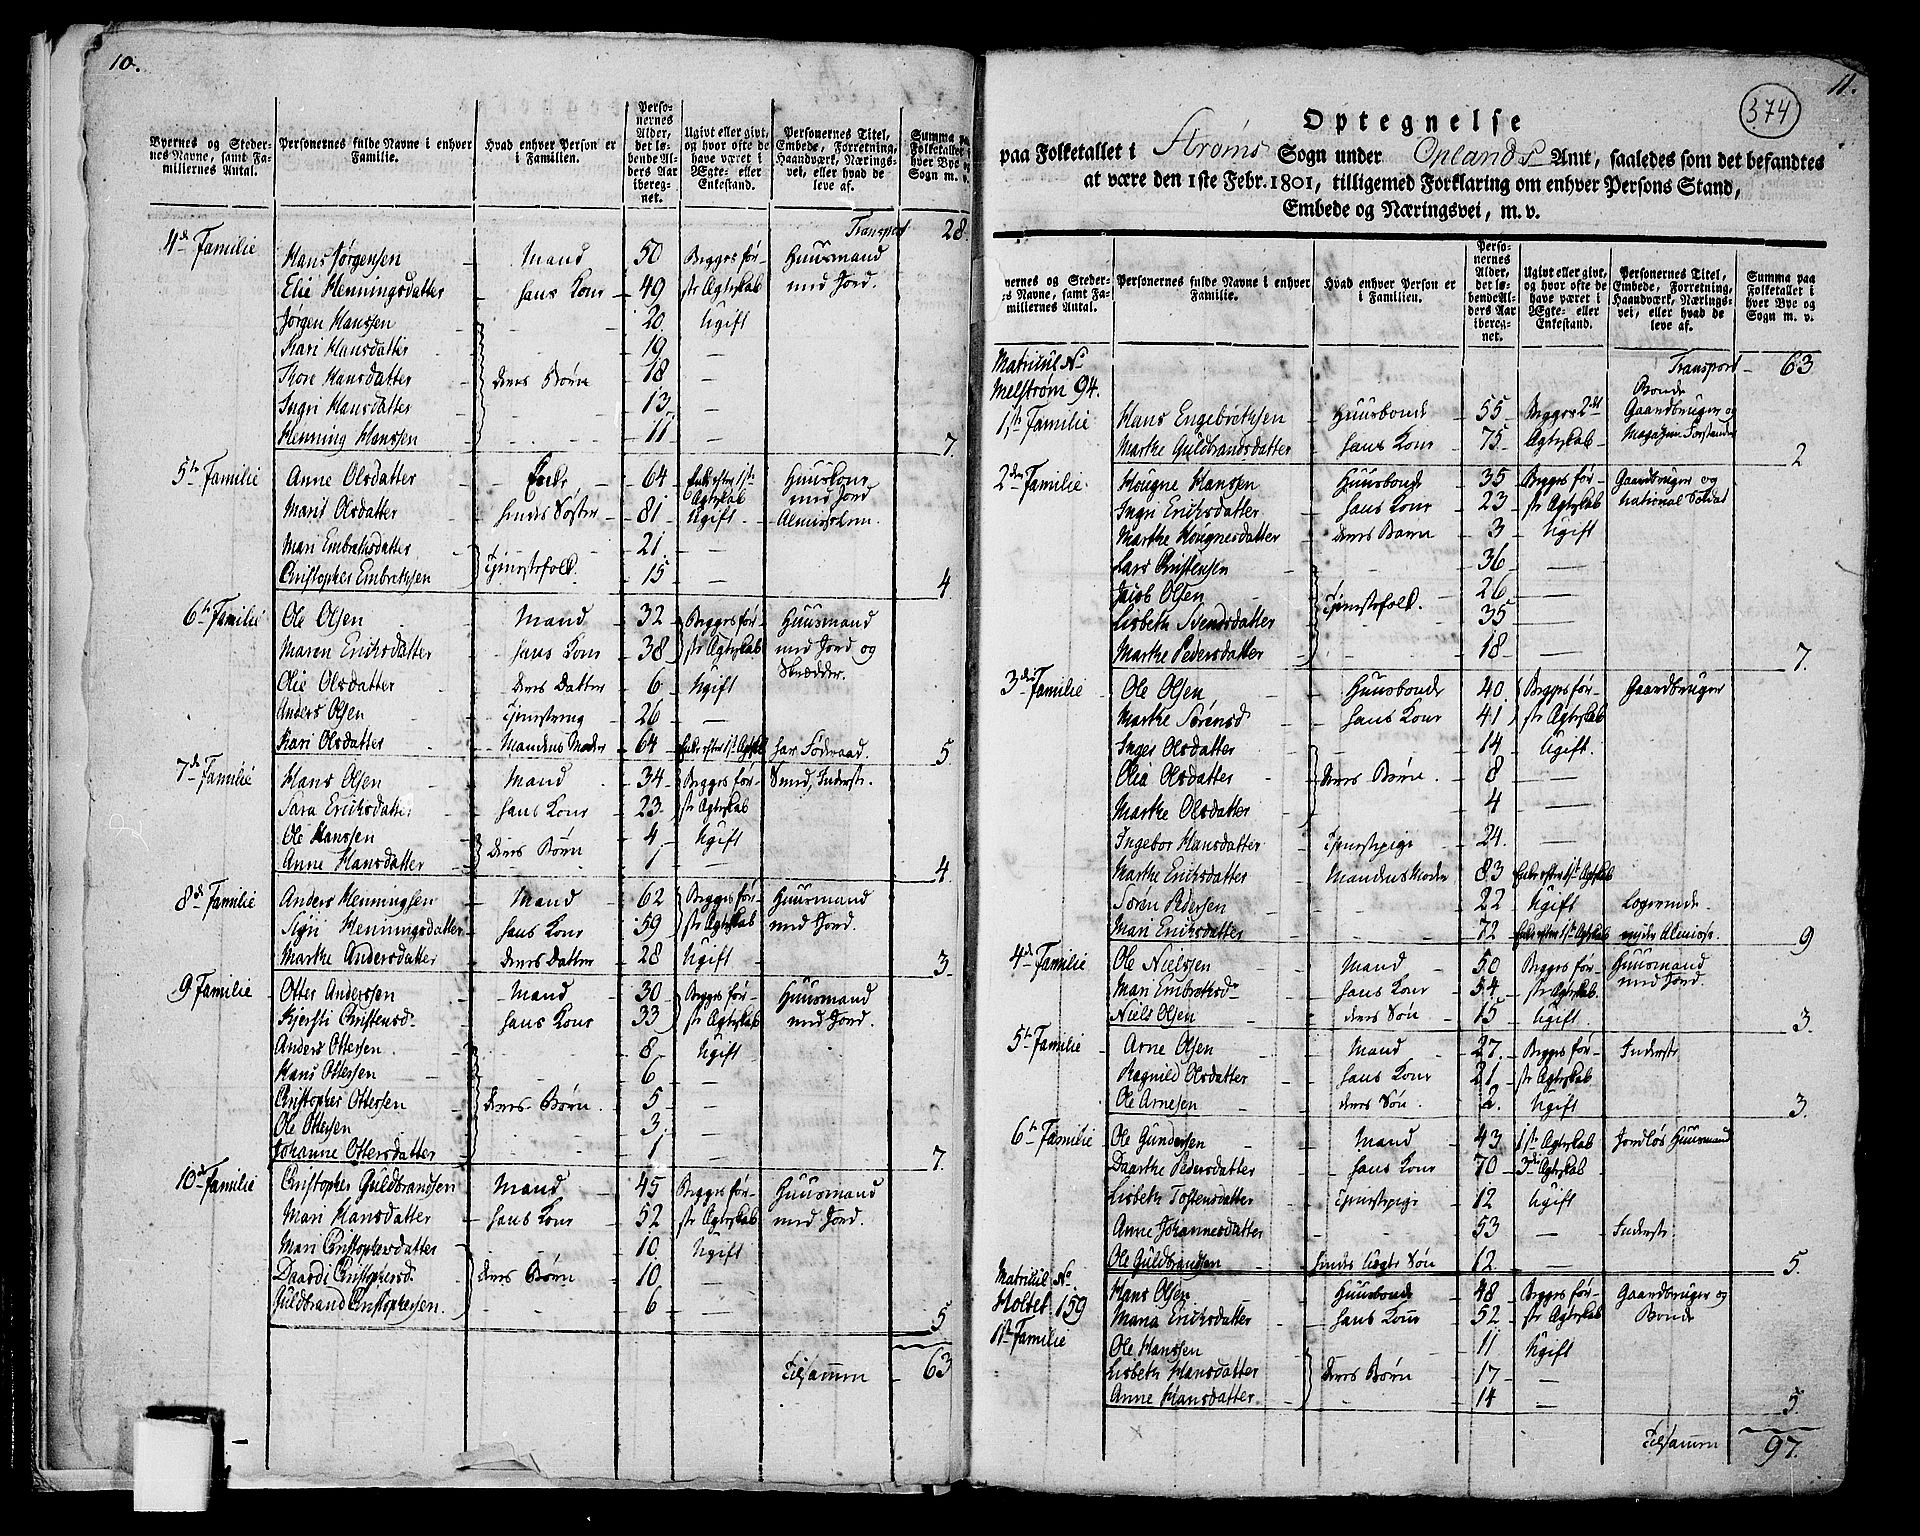 10.
Byernes og Stedernes Navne, samt Familiernes Antal.
Personernes fulde Navne i enhver Familie.
Hvad enhver Person er i Familien.
Personernes Alder, det løbende Alders Aar iberegnet.
Ugivt eller givt, og hvor ofte de have været i Ægte- eller Enkestand.
Personernes Titel, Embede, Forretning, Haandværk, Næringsvei, eller hvad de leve af.
Summa paa Folketallet i hver Bye og Sogn m. v.
Transport 28.
4de Familie
Hans Jørgensen Mand 50 Begges før- Huusmand
Elie Henningsdatter hans Kone 49 ste Ægteskab med Jord
Jørgen Hanssen 20 Ugift
Kari Hansdatter 19 —
Thore Hansdatter deres Børn 18 —
Ingri Hansdatter 13 —
Henning Hanssen 11 7.
5te Familie Anne Olsdatter Enke 64 Enke efter 1ste Ægteskab Huuskone med Jord
Marit Olsdatter hendes Søster 81 Ugift Almisselem.
Mari Embretsdatter 21 —
Christopher Embrethsen Tjenestefolk 15 — 4
6te Familie Ole Olsen Mand 32 Begges før- Huusmand
Maren Ericksdatter hans Kone 38 ste Ægteskab med Jord og
Olie Olsdatter deres Datter 6 Ugift Skrædder.
Anders Olsen Tjenestedreng 26 —
Kari Olsdatter Mandens Moder 64 Enke efter 1ste Ægtesk. har Føderaad. 5
7de Familie Hans Olsen Mand 34 Begges før- Smed, Inderst.
Sara Ericksdatter hans Kone 23 ste Ægteskab
Ole Hanssen 4 Ugift
Anne Hansdatter deres Børn 1 — 4.
8de Familie Anders Henningsen Mand 62 Begges før- Huusmand
Sigri Henningsdatter hans Kone 59 ste Ægteskab med Jord.
Marthe Andersdatter deres Datter 28 Ugift 3
9 Familie Otter Anderssen Mand 30 Begges før- Huusmand
Kjersti Christensd. hans Kone 33 ste Ægteskab med Jord.
Anders Ottersen 8 Ugift
Hans Ottersen 6 —
Christopher Ottersen deres Børn. 5 —
Ole Ottersen 3 —
Johanne Ottersdatter 1 — 7.
10de Familie Christopher Guldbrandsen Mand 45 Begges før- Huusmand
Mari Hansdatter hans Kone 52 ste Ægteskab med Jord.
Mari Christophersdatter 10 Ugift
Daardi Christophersd. deres Børn 10 —
Guldbrand Christophersen. 6 — 5
Tilsammen 63
11.
374
Optegnelse
paa Folketallet i Strøms Sogn under Oplands Amt, saaledes som det befandtes
at være den 1ste Febr. 1801, tilligemed Forklaring om enhver Persons Stand,
Embede og Næringsvei, m. v.
Byernes og Stedernes Navne, samt Familiernes Antal.
Personernes fulde Navne i enhver Familie.
Hvad enhver Person er i Familien.
Personernes Alder, det løbende Alders Aar iberegnet.
Ugivt eller givt, og hvor ofte de have været i Ægte- eller Enkestand.
Personernes Titel, Embede, Forretning, Haandværk, Næringsvei, eller hvad de leve af.
Summa paa Folketallet i hver Bye og Sogn m. v.
Matricul No Transport 63
Melstrøm 94. Bonde
1ste Familie Hans Engebrethsen Huusbonde 55 Begges 2det Gaardbruger og
Marthe Guldbrandsdatter hans Kone 75 Ægteskab Magazin Forstander 2
2den Familie Hougne Hansen Huusbonde 35 Begges før- Gaardbruger og
Ingri Ericksdatter hans Kone 23 ste Ægteskab National Soldat
Marthe Hougnesdatter deres Barn 3 Ugift
Lars Christensen 36 —
Jacob Olsen 26 —
Lisbeth Svendsdatter Tjenestefolk. 35 —
Marthe Pedersdatter 18 — 7.
3die Familie Ole Olsen Huusbonde 40 Begges før- Gaardbruger
Marthe Sørensd hans Kone 41 ste Ægteskab
Inger Olsdatter 14 Ugift.
Olia Olsdatter deres Børn 8 —
Marthe Olsdatter 4 —
Ingebor Hansdatter Tjenestepige 24 —
Marthe Ericksdatter Mandens Moder 83 Enke efter 1ste Ægtesk
Søren Pedersen 22 Ugift Logerende.
Mari Ericksdatter 72 Enke efter 1ste Ægtesk nyder Almisse. 9
4de Familie Ole Nielssen Mand 50 Begges før- Huusmand
Mari Embrethsdr hans Kone 54 ste Ægteskab. med Jord.
Niels Olsen deres Søn 15 Ugift 3.
5te Familie Arne Olsen Mand 27 Begges før- Inderst.
Ragnild Olsdatter hans Kone 21 ste Ægteskab
Ole Arnesen deres Søn 2 Ugift 3.
6te Familie Ole Gundersen Mand 43 1ste Ægteskab Jordløs Huusmand
Daarthe Pedersdatter hans Kone 70 3die Ægteskab
Lisbeth Tostensdatter Tjenestepige 12 Ugift
Anne Johannesdatter 53 Inderst.
Ole Guldbrandsen hendes Uægte Søn 12 — 5.
Matricul No
Holtet. 159 Hans Olsen Huusbonde 48 Begges før- Gaardbruger og
1ste Familie Maria Ericksdatter hans Kone 52 ste Ægteskab Bonde
Ole Hanssen 11 Ugift
Lisbeth Hansdatter deres Børn 17 —
Anne Hansdatter 14 — 5.
Tilsammen 97.